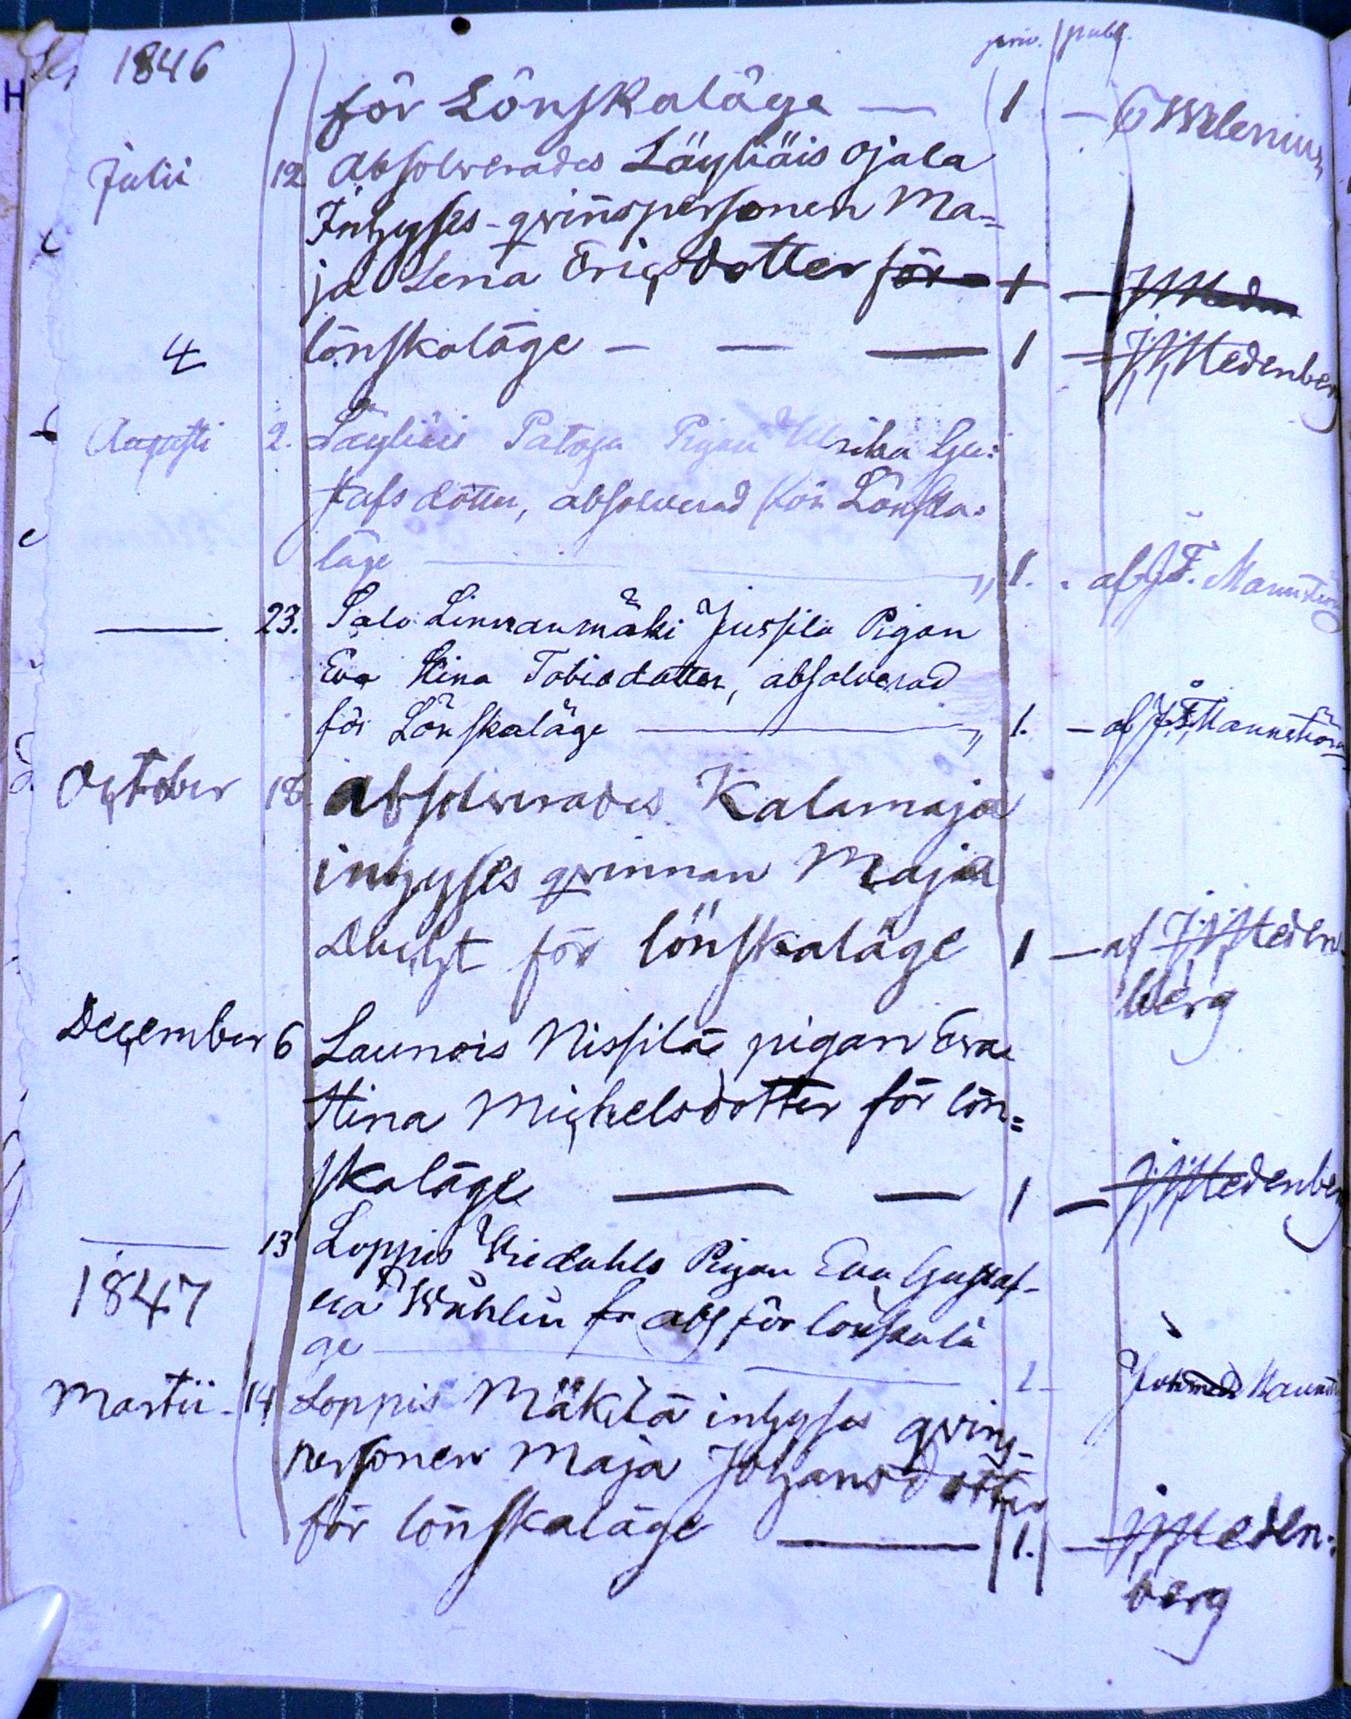 1846 priv. publ.
för Lönskaläge — 1. —
Julii 12 Absolverades Läyliäis Ojala
Inhyses-qvinspersonen Ma=
ja Lena Ericsdotter för 1 —
4 lönskaläge — — — 1 — Stedenberg
Augusti 2. Läyliäis Patoja Pigan Ulrika Gu:
stafsdotter, absolverad för Lönska-
läge — „ 1. - af J.F. Mannström
— 23. Salo Linnanmäki Jussila Pigan
Eva Stina Tobiedotter, absolverad
för Lönskaläge — „ 1. — af J.F. Mannström
October 18 absolverades Kalamaja
inhyses qvinnan Maja
för lönskaläge 1 — af Steden
berg
December 6 Launois Nissilä pigan Eva
Stina Michelsdotter för lön=
skaläge — — 1 — Stedenberg
— 13 Loppis Pigan Eva Gustaf-
1847 va Wahlin fr abs för lönskalä
ge — 1 -
Martii - 14 Loppis Mäkilä inhyses qvins-
personen Maja Johansdotter
för lönskaläge — 1. — Steden:
berg